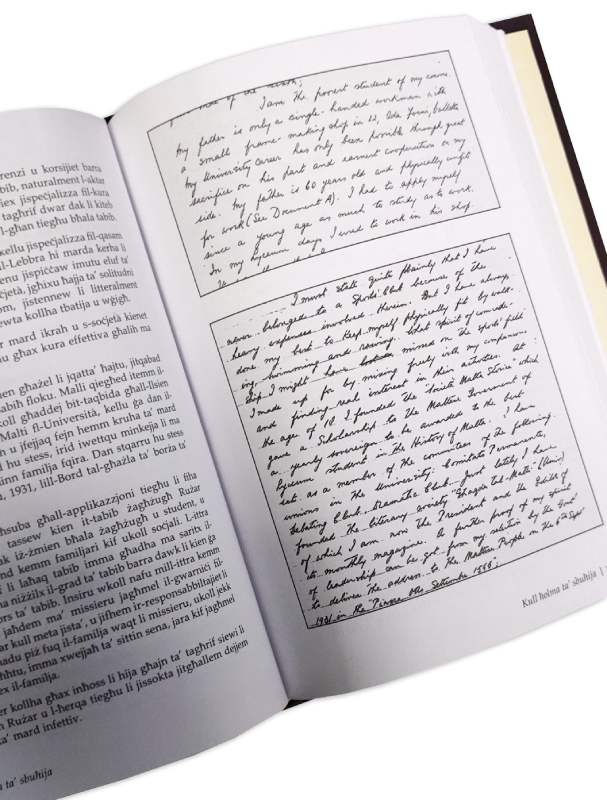 renzi u korsijiet barra
bib, naturalment l-aktar
jiex jispeċjalizza fil-kura
tagħrif dwar dak li kiteb
l-għan tiegħu bħala tabib.
kellu jispeċjalizza fil-qasam
il-Lebbra hi marda kerha li
enu jispiċċaw imutu eluf ta'
ċjetà, jgħixu ħajja ta' solitudni
om, jistennew li litteralment
ewta kollha tbatija u wġigħ.
r mard ikrah u s-soċjetà kienet
u għax kura effettiva għalih ma
en għażel li jqatta' ħajtu, jitqabad
abiħ floku. Malli qiegħed itemm il-
koll għaddej bit-taqbida għall-Ilsien
Malti fl-Università, kellu ġa dan il-
h u jfejjaq fejn hemm kruha ta' mard
l hu stess, irid iwettqu minkejja li ma
inn familja fqira. Dan stqarru hu stess
, 1931, lill-Bord tal-għażla ta' borża ta'
ħsuba għall-applikazzjoni tiegħu li fiha
tassew kien it-tabib żagħżugħ Rużar
ak iż-żmien bħala żagħżugħ u student, u
nd kemm familjari kif ukoll soċjali. L-ittra
i li laħaq tabib imma għadha ma sarits il-
ba niżżilx il-grad ta' tabib barra dawk li kien ġa
ors ta' tabib. Insiru wkoll nafu mill-ittra kemm
jaħdem ma' missieru jagħmel il-gwarniċi fil-
ar kull meta jista', u jifhem ir-responsabbiltajiet li
adu piż fuq il-familja waqt li missieru, ukoll jekk
tħtu, imma xwejjaħ ta' sittin sena, jara kif jagħmel
ex il-familja.
er kollha għax inħoss li hija għajn ta' tagħrif siewi li
n Rużar u l-ħerqa tiegħu li jissokta jitgħallem dejjem
ta' mard infettiv.
a ta' sbuħija
I am the poorest student of my course.
My father is only a single-handed workman with
a small frame-making shop in 12, Sda Forni, Valletta
My University career has only been possible through great
sacrifice on his part and earnest cooperation on my
side. My father is 60 years old and physically unfit
for work (See Document A). I had to apply myself
since a young age as much to study as to work.
In my Lyceum days, I used to work in his shop.
I must state quite plainly that I have
never belonged to a Sports' Club because of the
heavy expenses involved therein. But I have always
done my best to keep myself physically fit by walk-
ing, swimming and rowing. What spirit of comrade-
ship I might have missed on the sports' field
I made up for by mixing freely with my companions
and finding real interest in their activities. At
the age of 18 I founded the "Società Maltà Storica" which
gave a Scholarship to the Maltese Government of
a yearly sovereign to be awarded to the best
Lyceum student in the History of Malta. I have
sat as a member of the committees of the following
unions in the University: Comitato Permanente,
Debating Club, Dramatic Club. Just lately I have
founded the literary society "Għaqda tal-Malti" (Univ.)
of which I am now the President and the Editor of
its monthly magazine. A further proof of my spirit
of leadership can be got from my selection by the Govt
to deliver the address to the Maltese People on the 8th Sept
1931 in the "Piazza Otto Settembre 1565".
Kull ħolma ta' sbuħija |